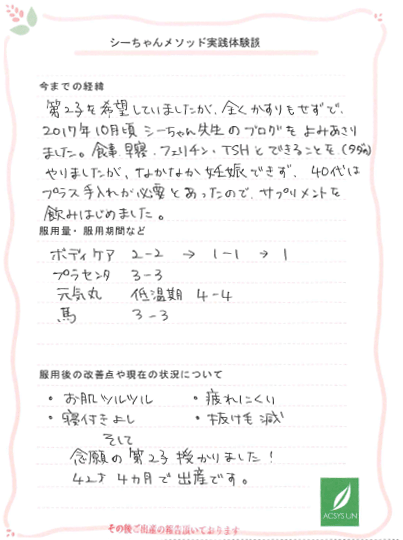 シーちゃんメソッド実践体験談
今までの経緯
第2子を希望していましたが、全くかすりもせずで、
2017年10月頃 シーちゃん先生のブログをよみあさり
ました。食事、早寝、フェリチン・TSHとできることを(タダの)
やりましたが、なかなか妊娠できず、40代は
プラス手入れが必要とあったので、サプリメントを
飲みはじめました。
服用量・服用期間など
ボディケア 2-2 → 1-1 → 1
プラセンタ 3-3
元気丸 低温期 4-4
馬 3-3
服用後の改善点や現在の状況について
・お肌ツルツル ・疲れにくい
・寝付きよし ・抜け毛減
そして
念願の第2子授かりました!
42才4カ月で出産です。
その後ご出産の報告頂いております
ACSYS.UN